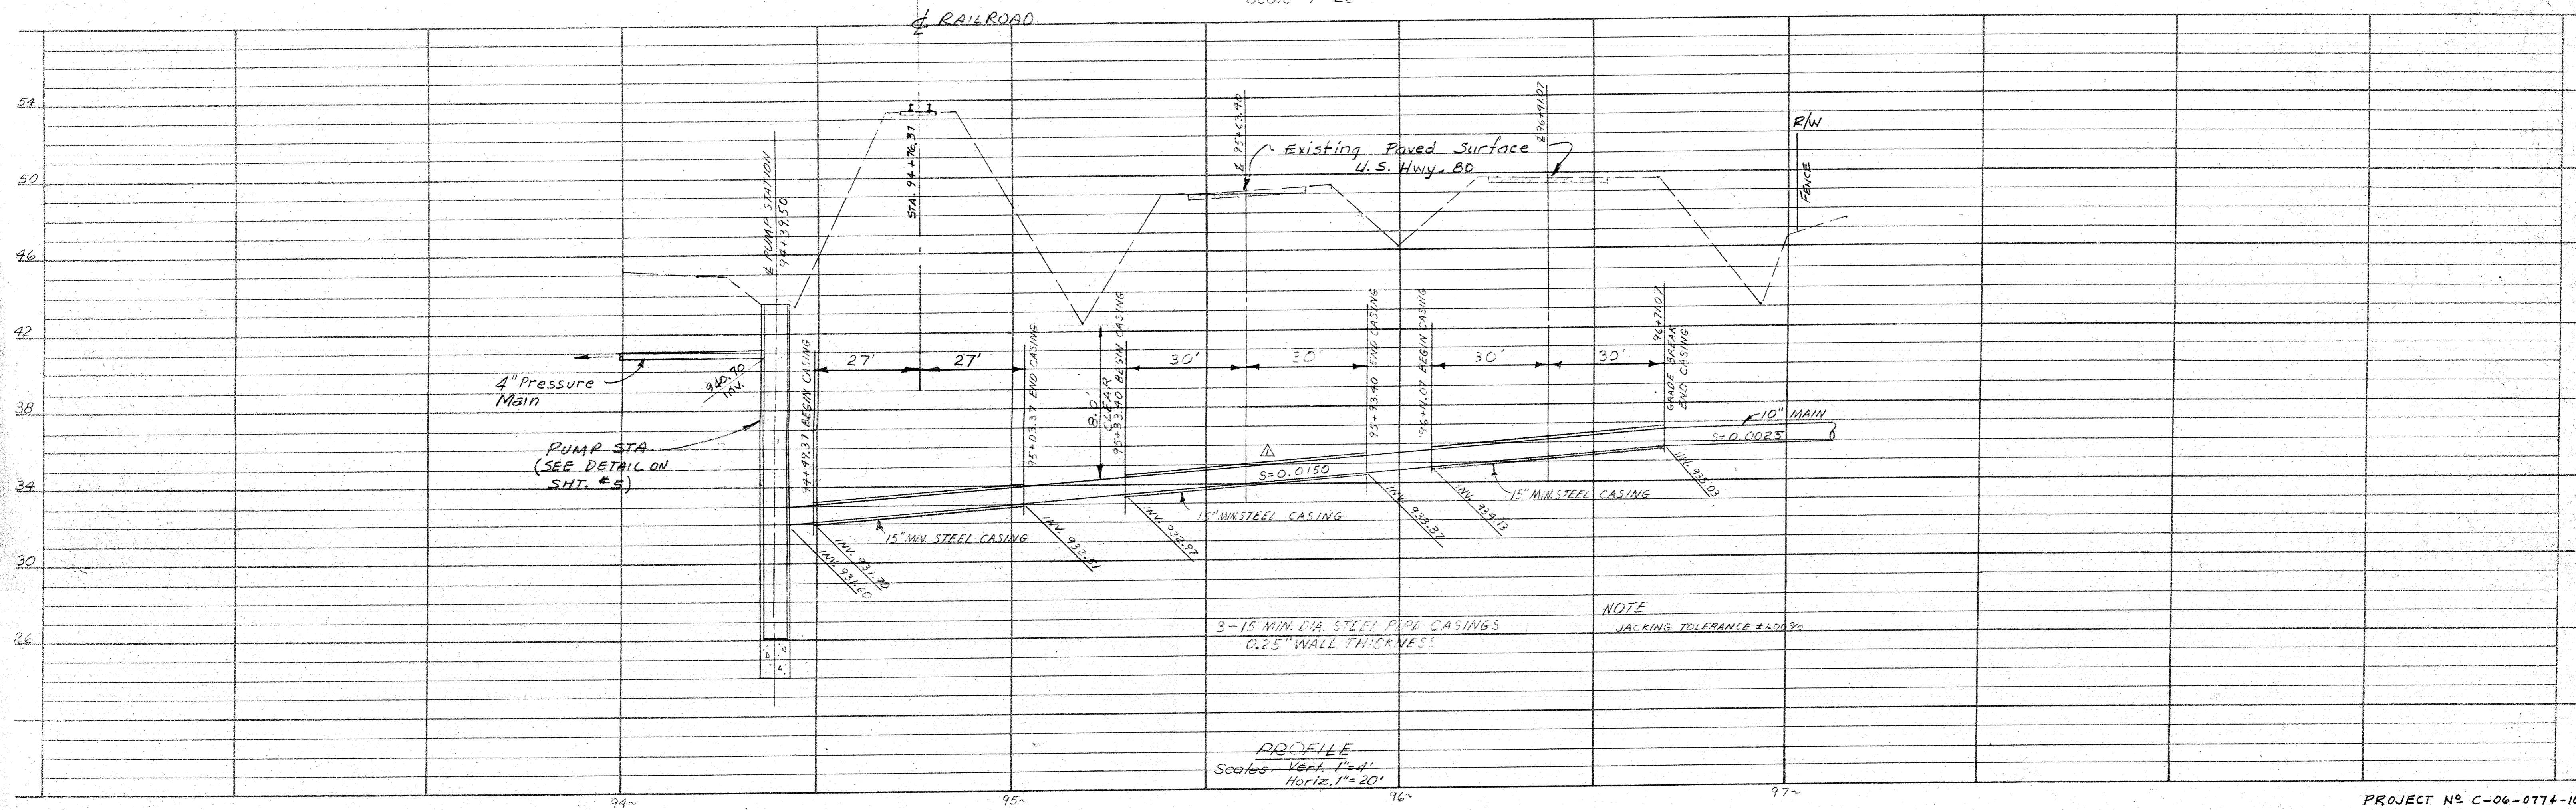 ℄ RAILROAD
54
50
46
42
38
34
30
26
℄ PUMP STATION
94+39.50
STA. 94+76.37
℄ 95+63.40
℄ 96+41.07
Existing Paved Surface
U.S. Hwy. 80
R/W
FENCE
4" Pressure
Main
940.70
INV.
PUMP STA.
(SEE DETAIL ON
SHT. #5)
94+49.37 BEGIN CASING
27'
27'
95+03.37 END CASING
8.0'
CLEAR
95+33.40 BEGIN CASING
30'
30'
95+93.40 END CASING
96+11.07 BEGIN CASING
30'
30'
96+71.07
GRADE BREAK
END CASING
10" MAIN
S=0.0025
S=0.0150
15" MIN. STEEL CASING
15" MIN. STEEL CASING
15" MIN. STEEL CASING
INV. 931.70
INV. 931.60
INV. 932.51
INV. 932.97
INV. 934.13
INV. 935.03
3-15" MIN. DIA. STEEL PIPE CASINGS
0.25" WALL THICKNESS
NOTE
JACKING TOLERANCE
PROFILE
Scales - Vert. 1"=4'
Horiz. 1"=20'
94~
95~
96~
97~
PROJECT Nº C-06-0774-